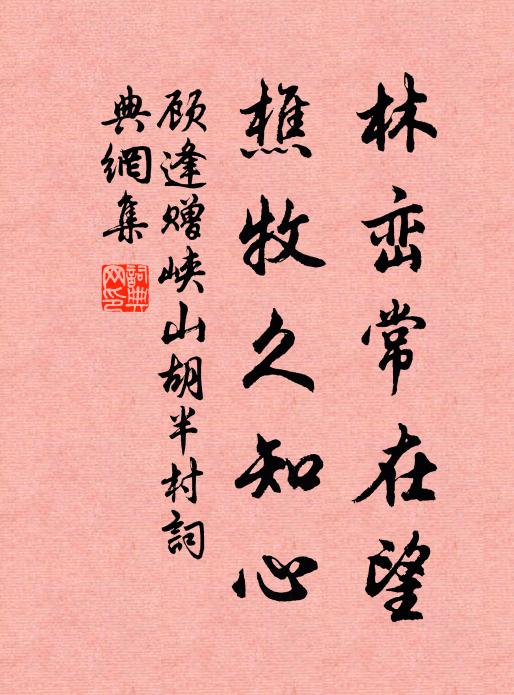 林峦常在望
樵牧久知心
顾逢赠峡山胡半村詞
典網集
詞典网印